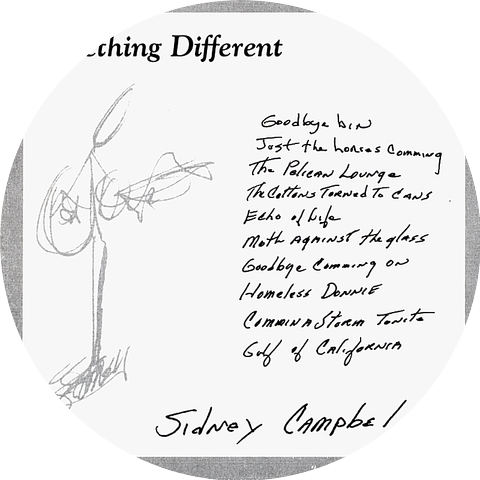 thing Different
Goodbye bin
Just the horses Comming
The Pelican Lounge
The Cottons Torned To Cans
Echo of Life
Moth AgAinst the glass
Goodbye Comming on
Homeless DONNIE
Storm Tonite
Gulf of CAliforniA
Sidney CAmpbel